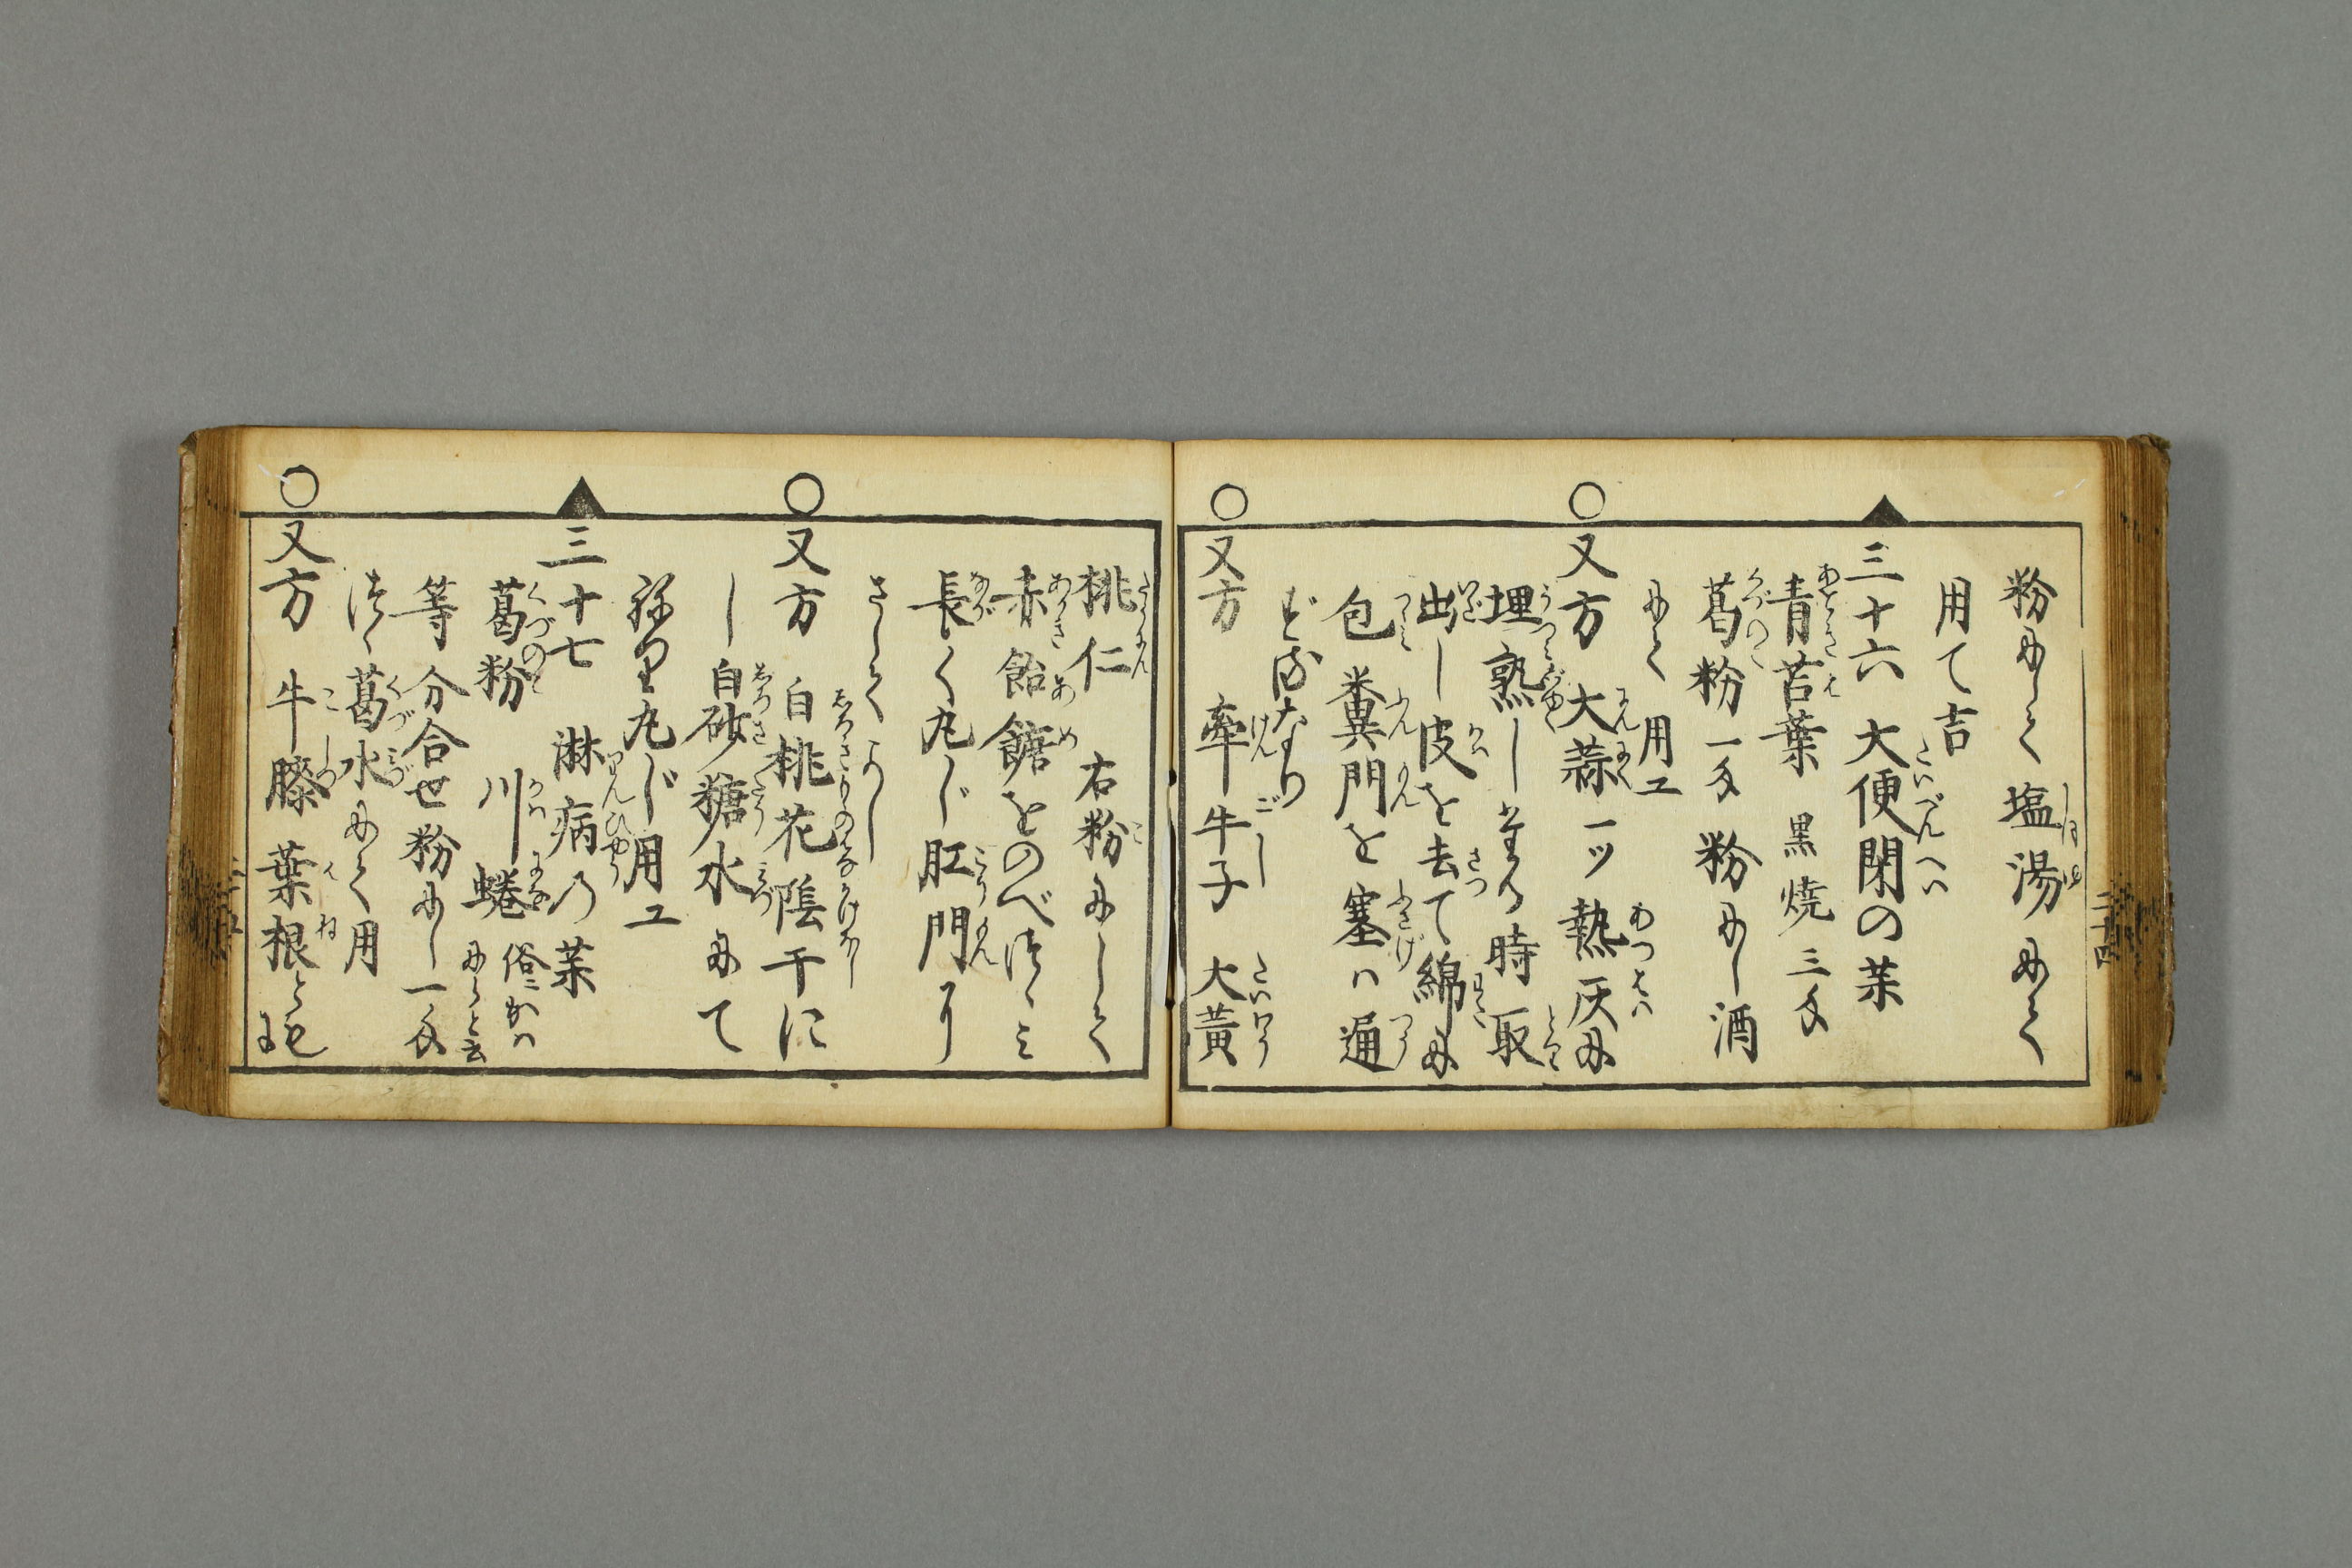 粉にして塩湯にて
用て吉
▲三十六 大便閉の茱
青苔葉 黒焼三匁
葛粉一匁 粉にし酒
にて用ユ
○又方 大蒜一ツ熱灰に
埋熟し 時取
出し皮を去て綿に
包糞門を塞ハ通
ずるなり
○又方 牽牛子 大黄
桃仁 右粉にして
赤飴餹をのべつゝミ
長く丸じ肛門
さしてよし
○又方 白桃花陰干に
し白砂糖水にて
ねり丸じ用ユ
▲三十七 淋病乃茱
葛粉 川蜷 俗ニかハにらと云
等分合せ粉にし一匁
つゝ葛水にて用
○又方 牛膝葉根とも